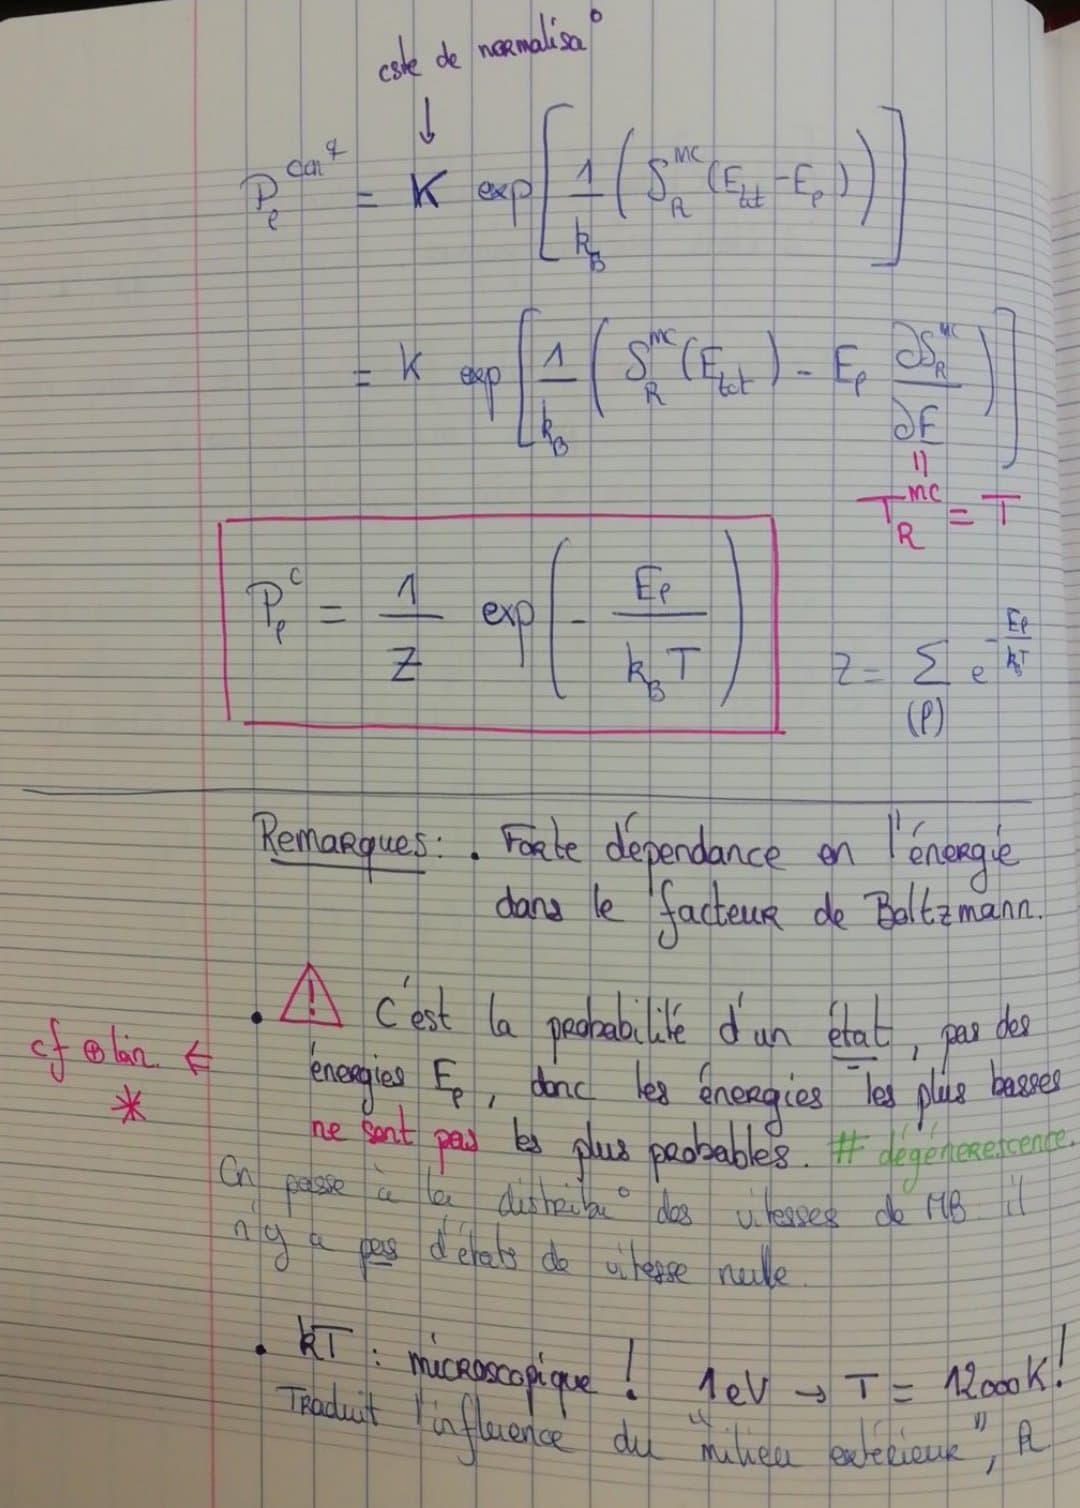 cste de normalisa°
↓
P_ℓ^{can q} = K exp[ 1/k_B ( S_R^{MC} (E_tot - E_ℓ) ) ]
= K exp[ 1/k_B ( S_R^{MC} (E_tot) - E_ℓ ∂S_R^{MC}/∂E ) ]
=
T_R^{MC} = T
P_ℓ^C = 1/Z exp( - E_ℓ/(k_B T) )
Z = Σ_(ℓ) e^{-E_ℓ/kT}
Remarques : . Forte dépendance en l'énergie
dans le facteur de Boltzmann.
. ⚠ C'est la probabilité d'un état, pas des
cf ⊕ loin ⇐
énergies E_ℓ, donc les énergies les plus basses
*
ne sont pas les plus probables. # dégénerescence.
On passe à la distribu° des vitesses de MB il
n'y a pas d'états de vitesse nulle.
. kT : microscopique ! 1eV → T = 12000K!
Traduit l'influence du "milieu extérieur", R